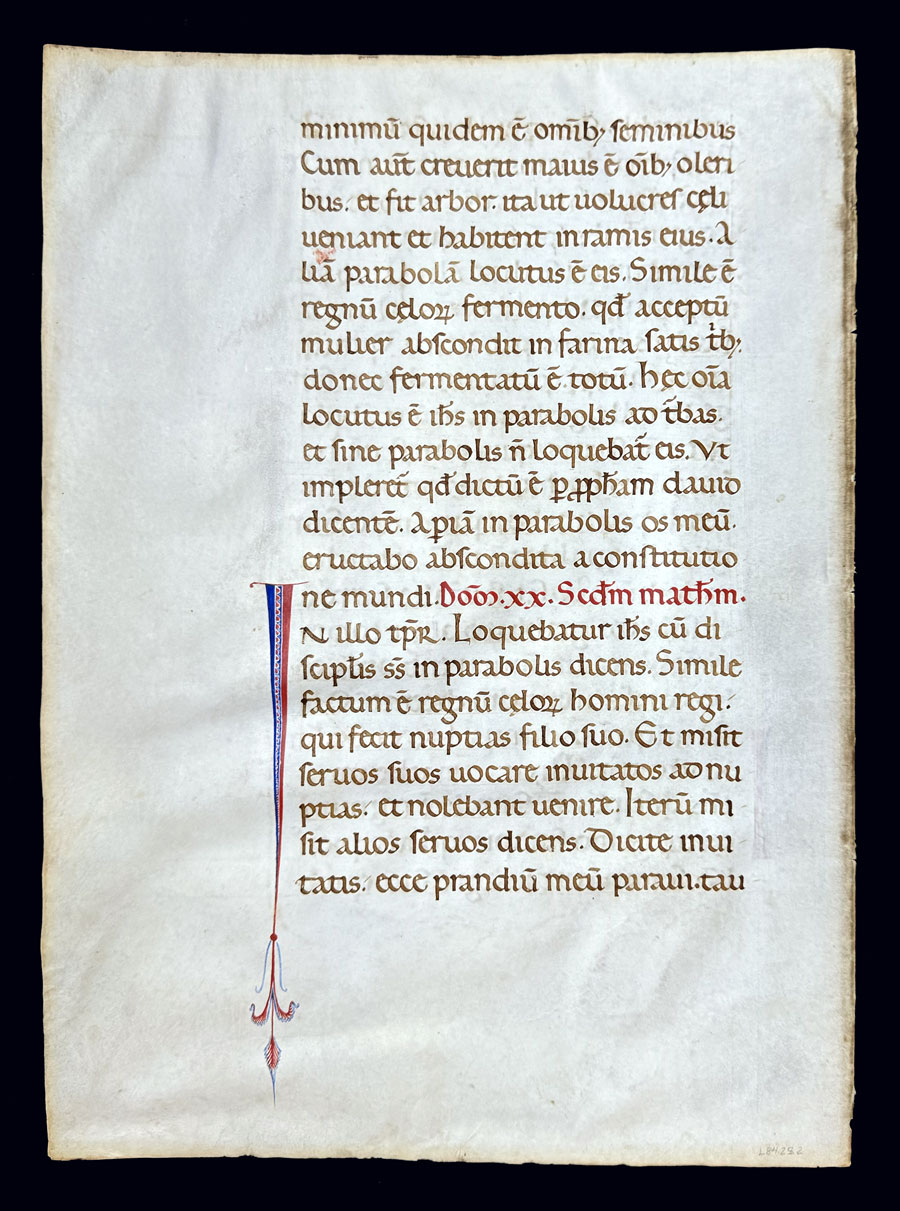 minimū quidem ē om̄ibꝫ seminibus
Cum aut̄ creuerit maius ē oīb, oleri
bus. et fit arbor. ita ut uolucres cęli
ueniant et habitent in ramis eius. A
liā parabolā locutus ē eis. Simile ē
regnū cęloꝝ fermento. qđ acceptū
mulier abscondit in farina satis t̄bꝫ.
donec fermentatū ē totū. hęc oīa
locutus ē ih̄s in parabolis ad t̄bas.
et sine parabolis n̄ loquebat̄ eis. Vt
impleret̄ qđ dictū ē ꝑ ꝓph̄am dauid
dicentē. Aꝑiā in parabolis os meū.
eructabo abscondita a constitutio
ne mundi. Dōm̄. xx. Scđm math̄m.
IN illo tp̄R. Loquebatur ih̄s cū di
scipl̄is ss̄ in parabolis dicens. Simile
factum ē regnū cęloꝝ homini regi.
qui fecit nuptias filio suo. Et misit
seruos suos uocare inuitatos ad nu
ptias. et nolebant uenire. Iterū mi
sit alios seruos dicens. Dicite inui
tatis. ecce prandiū meū paraui. tau
L84252